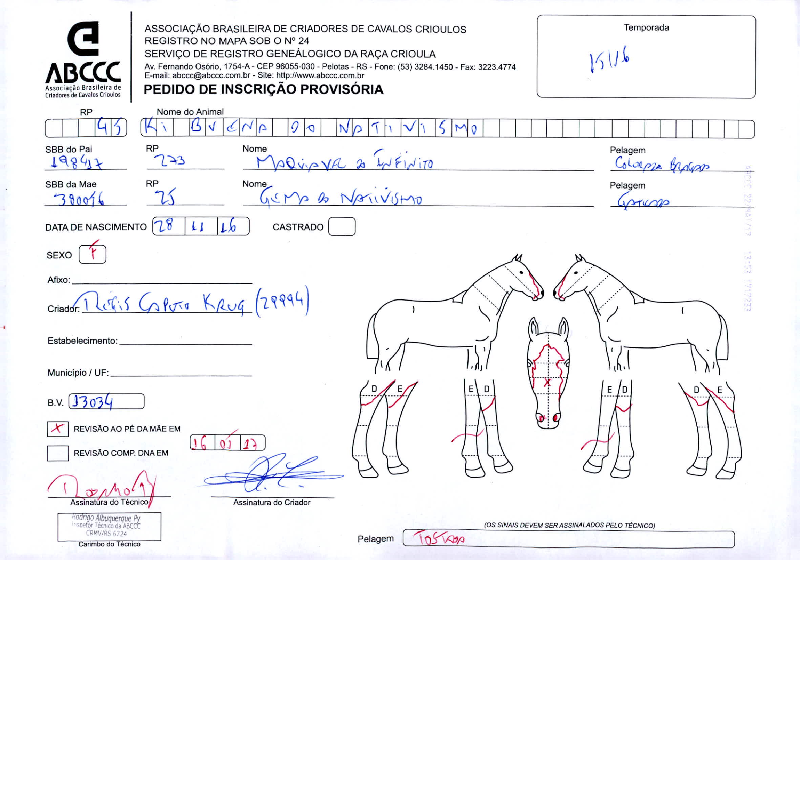 ABCCC
Associação Brasileira de
Criadores de Cavalos Crioulos
ASSOCIAÇÃO BRASILEIRA DE CRIADORES DE CAVALOS CRIOULOS
REGISTRO NO MAPA SOB O Nº 24
SERVIÇO DE REGISTRO GENEÁLOGICO DA RAÇA CRIOULA
Av. Fernando Osório, 1754-A - CEP 96055-030 - Pelotas - RS - Fone: (53) 3284.1450 - Fax: 3223.4774
E-mail: abccc@abccc.com.br - Site: http://www.abccc.com.br
PEDIDO DE INSCRIÇÃO PROVISÓRIA
Temporada
15/16
RP Nome do Animal
45 KI BUENA DO NATIVISMO
SBB do Pai RP Nome Pelagem
198417 273 DO INFINITO
SBB da Mae RP Nome Pelagem
25 GEMA DO NATIVISMO GATEADA
DATA DE NASCIMENTO 28 11 16 CASTRADO
SEXO F
Afixo:
Criador: CAPUTO KRUG (29994)
Estabelecimento:
Município / UF:
B.V. 13034
X REVISÃO AO PÉ DA MÃE EM 16 01 17
REVISÃO COMP. DNA EM
Assinatura do Técnico Assinatura do Criador
Rodrigo Albuquerque Py
Inspetor Técnico da ABCCC
CRMV/RS 6724
Carimbo do Técnico
D E E D E D D E
(OS SINAIS DEVEM SER ASSINALADOS PELO TÉCNICO)
Pelagem TOSTADA